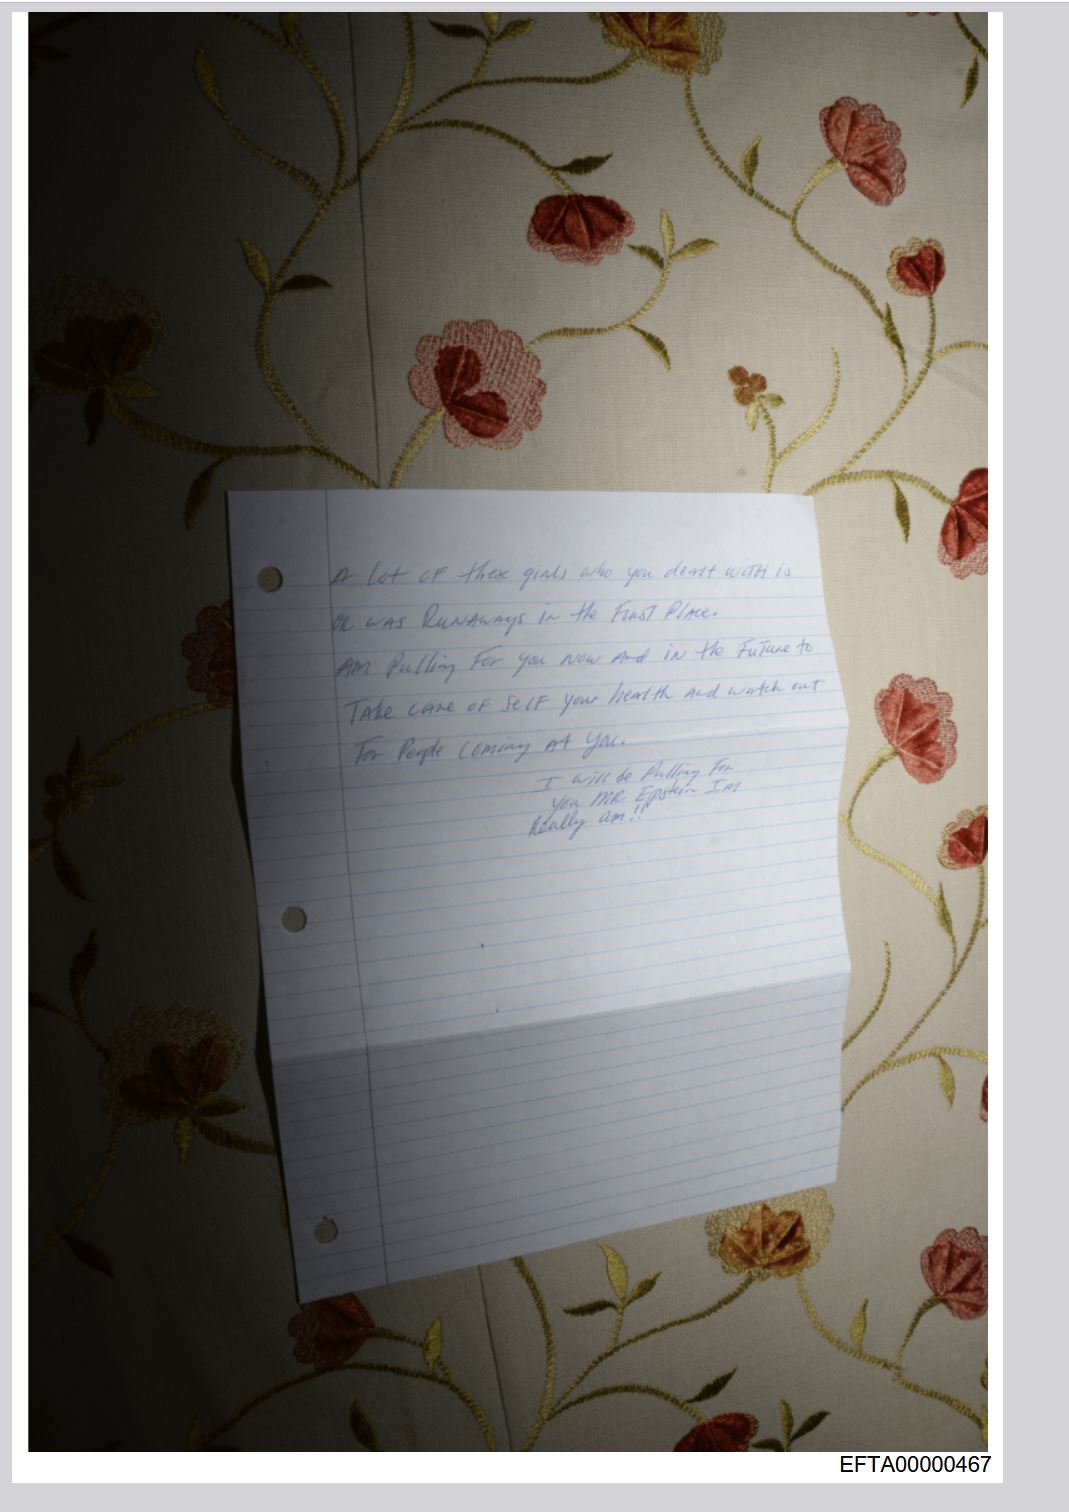 A lot of these girls who you dealt with is
or was Runaways in the First Place.
Am Pulling For you now and in the Future to
Take care of self your health and watch out
For People coming at you.
I will be Pulling For
you MR. Epstein Im
Really am!!
EFTA00000467